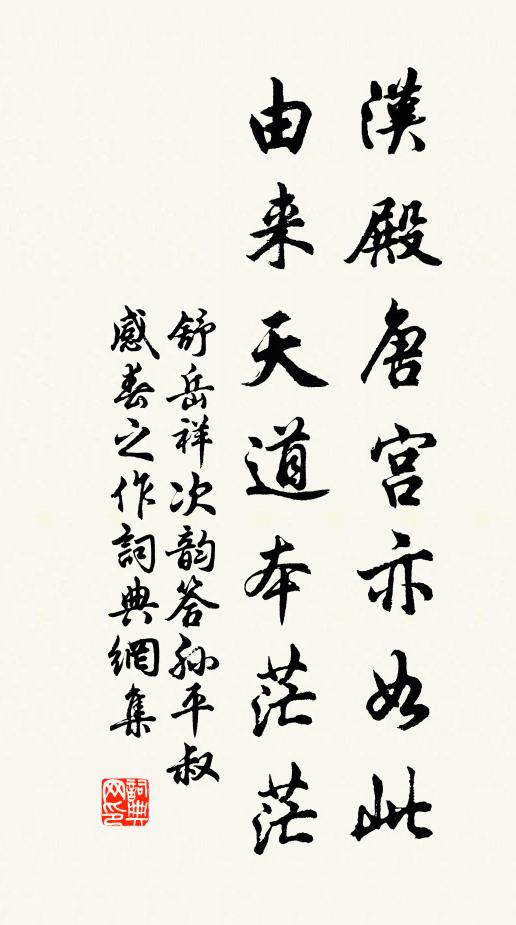 漢殿唐宫亦如此
由来天道本茫茫
舒岳祥次韵答孙平叔
感春之作詞典網集
詞典网印